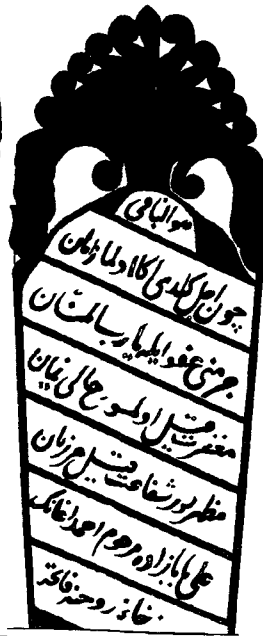 هو الباقی
چون اجل کلدی اکا اولماز امان
جرمنی عفو ایله یا رب المنان
مغفرت قیل اولمسون حالی یمان
مظهر نور شفاعت قیل هر زمان
علی بابازاده مرحوم احمد اغانک
روحنه فاتحه